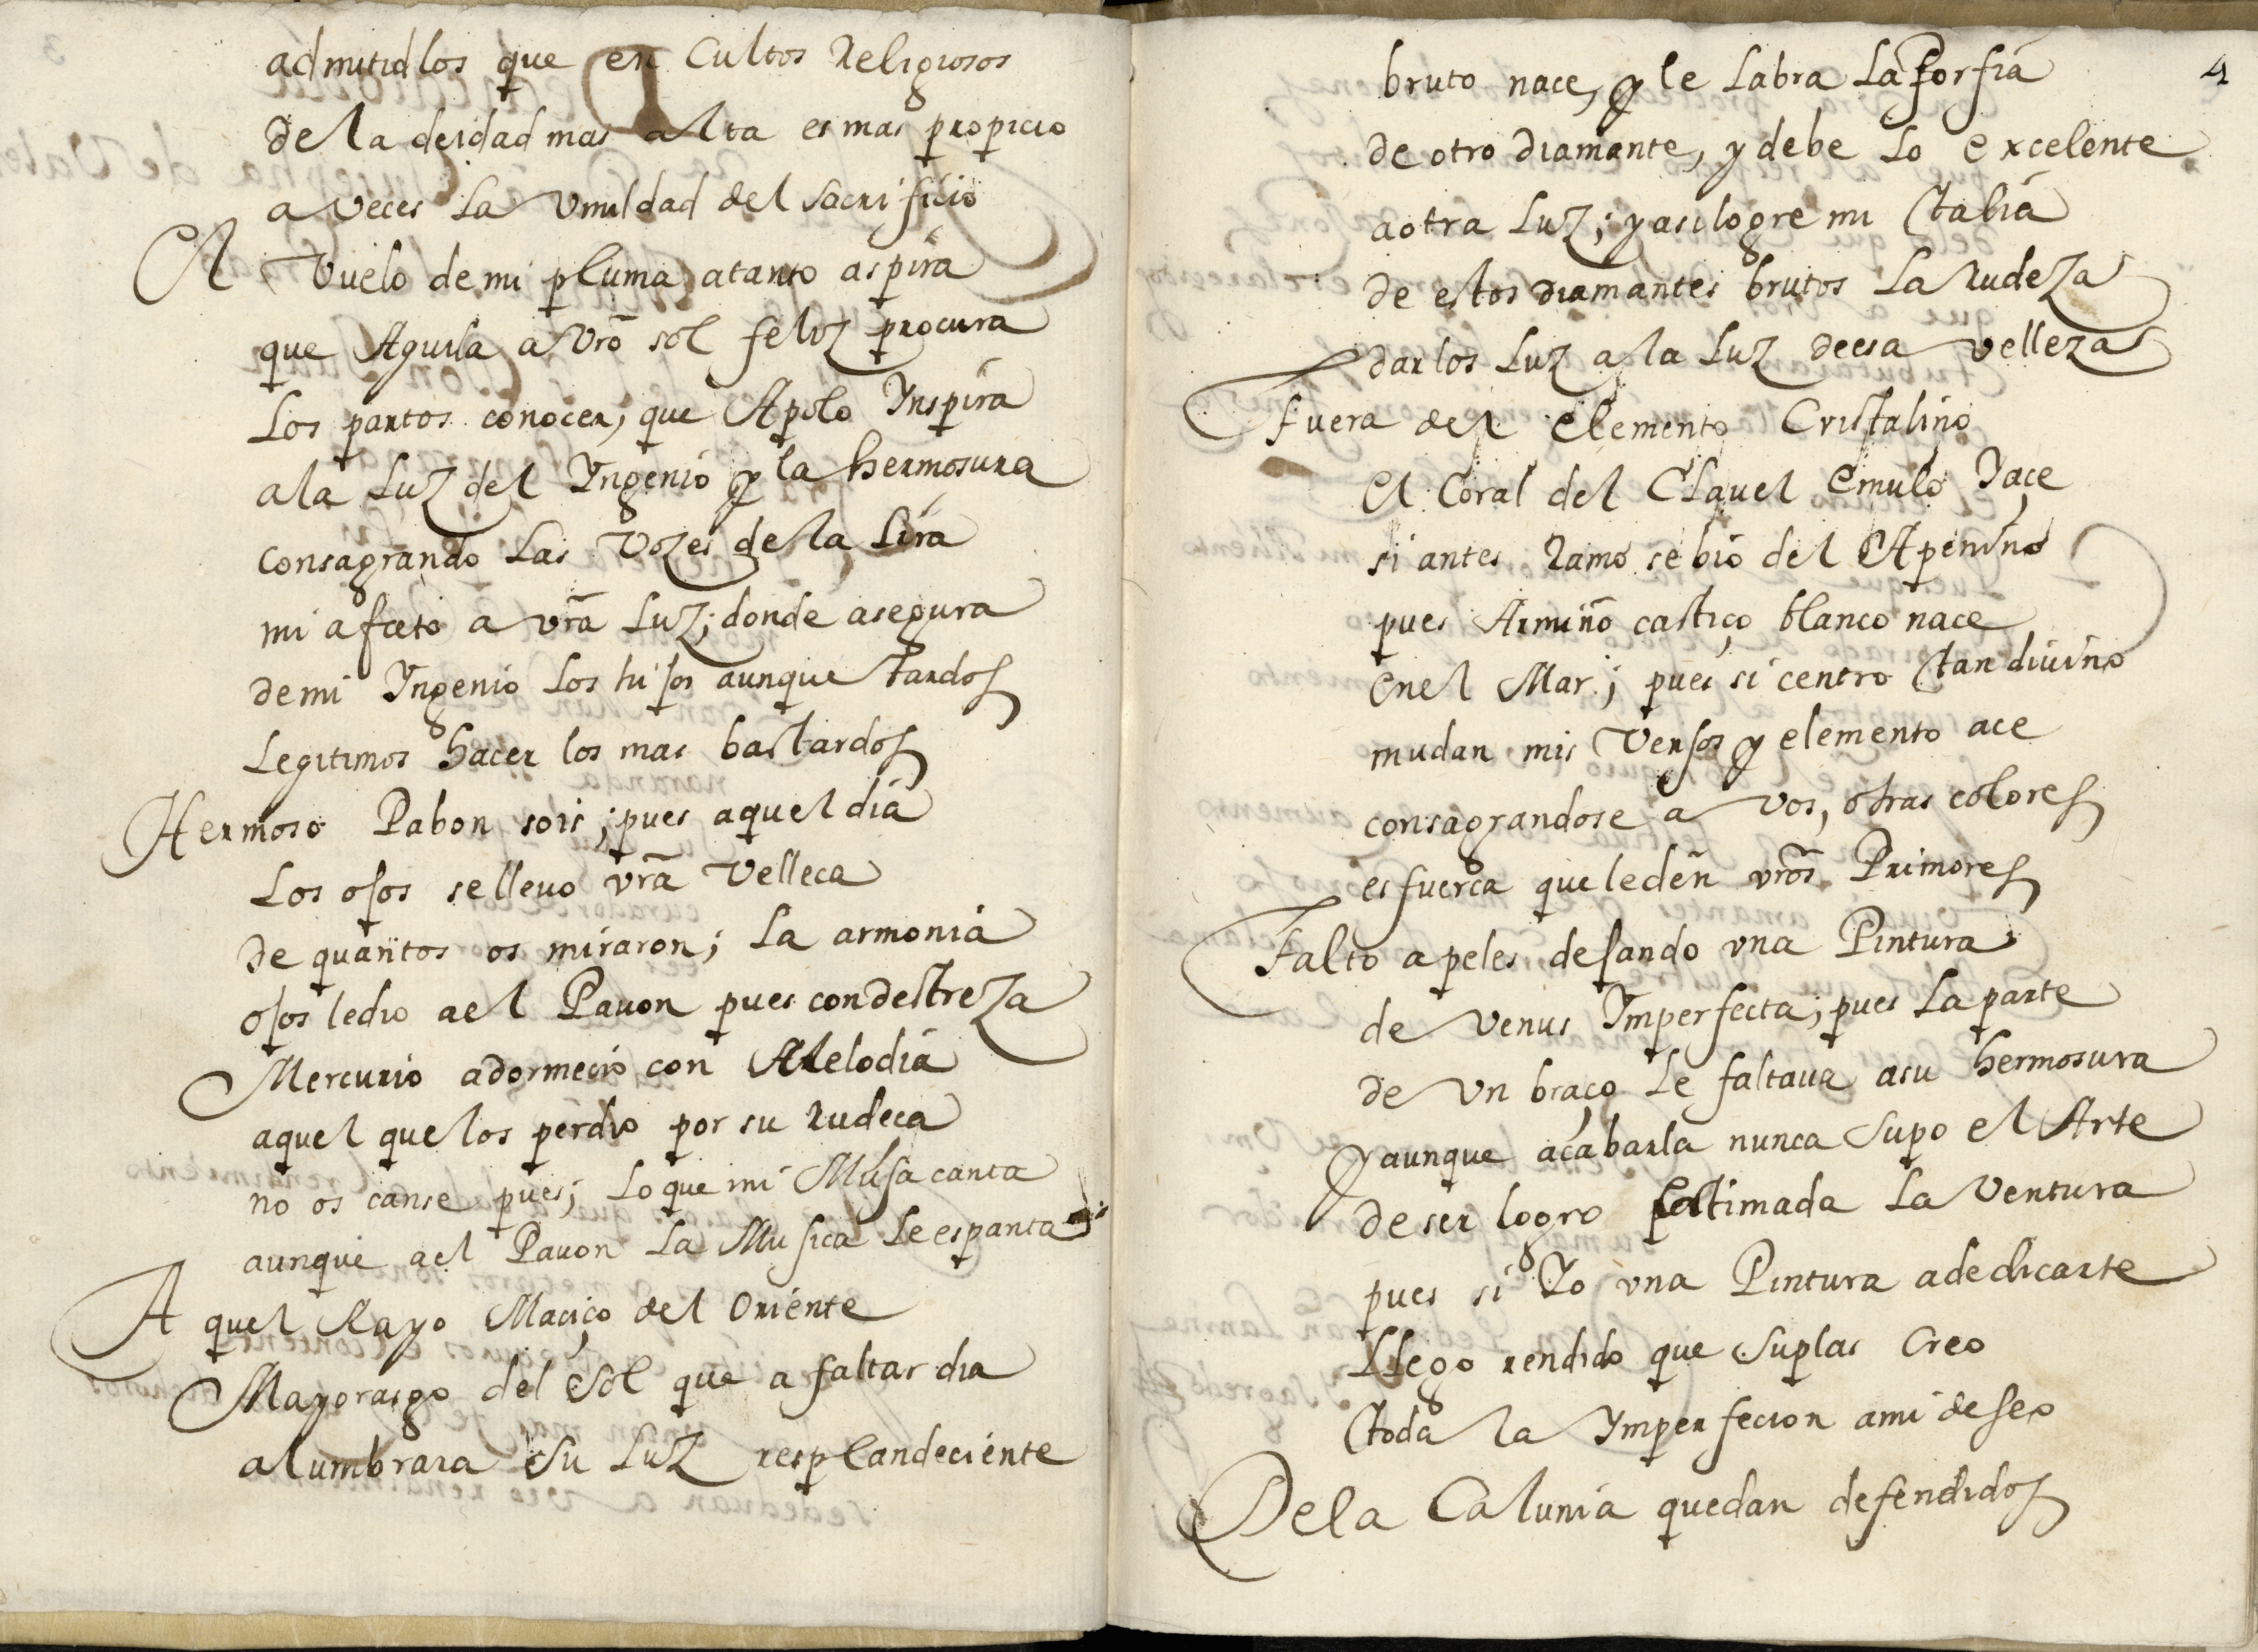 admitidlos que en Cultos Religiosos
de la deidad mas alta es mas propicio
a veces la vmildad del sacrificio
El Vuelo de mi pluma atanto aspira
que Aguila a vrō sol feliz procura
Los partos conocer, que Apolo Inspira
ala Luz del Yngenio y la hermosura
consagrando Las Vozes de la Lira
mi afecto a vrā Luz; donde asegura
demi Yngenio Los hijos aunque tardos
Legitimos hacer los mas bastardos
Hermoso Pabon sois; pues aquel dia
Los ojos se lleuo vrā Velleca
De quantos os miraron; La armonia
ojos ledio ael Pauon pues con destreza
Mercurio adormecio con Melodia
aquel que los perdio por su rudeca
no os canse pues; Lo que mi Musa canta
aunque ael Pauon La Musica Le espanta
A quel Rayo Maciço del Oriente
Mayorasgo del Sol que a faltar dia
alumbrara Su Luz resplandeciente
4
bruto nace, y le Labra La Porfia
de otro diamante, y debe Lo excelente
a otra Luz; y asi logre mi Talia
de estos diamantes brutos La rudeza
darlos Luz a la Luz deesa velleza
Fuera del elemento Cristalino
el Coral del Clauel emulo Yace
si antes Ramo se bio del Apenino
pues Armiño castiço blanco nace
enel Mar; pues si centro tan diuino
mudan mis Versos y elemento ace
consagrandose a vos, otras colores
es fuerca que leden vrōs Primores
Falto apeles dejando vna Pintura
de Venus Ymperfecta; pues La parte
de Vn braço Le faltaua asu hermosura
y aunque acabarla nunca Supo el Arte
de ser logro estimada La Ventura
pues si Yo vna Pintura adedicarte
Llego rendido que Suplas Creo
toda la Ymperfecion ami deseo
Dela Calunia quedan defendidos